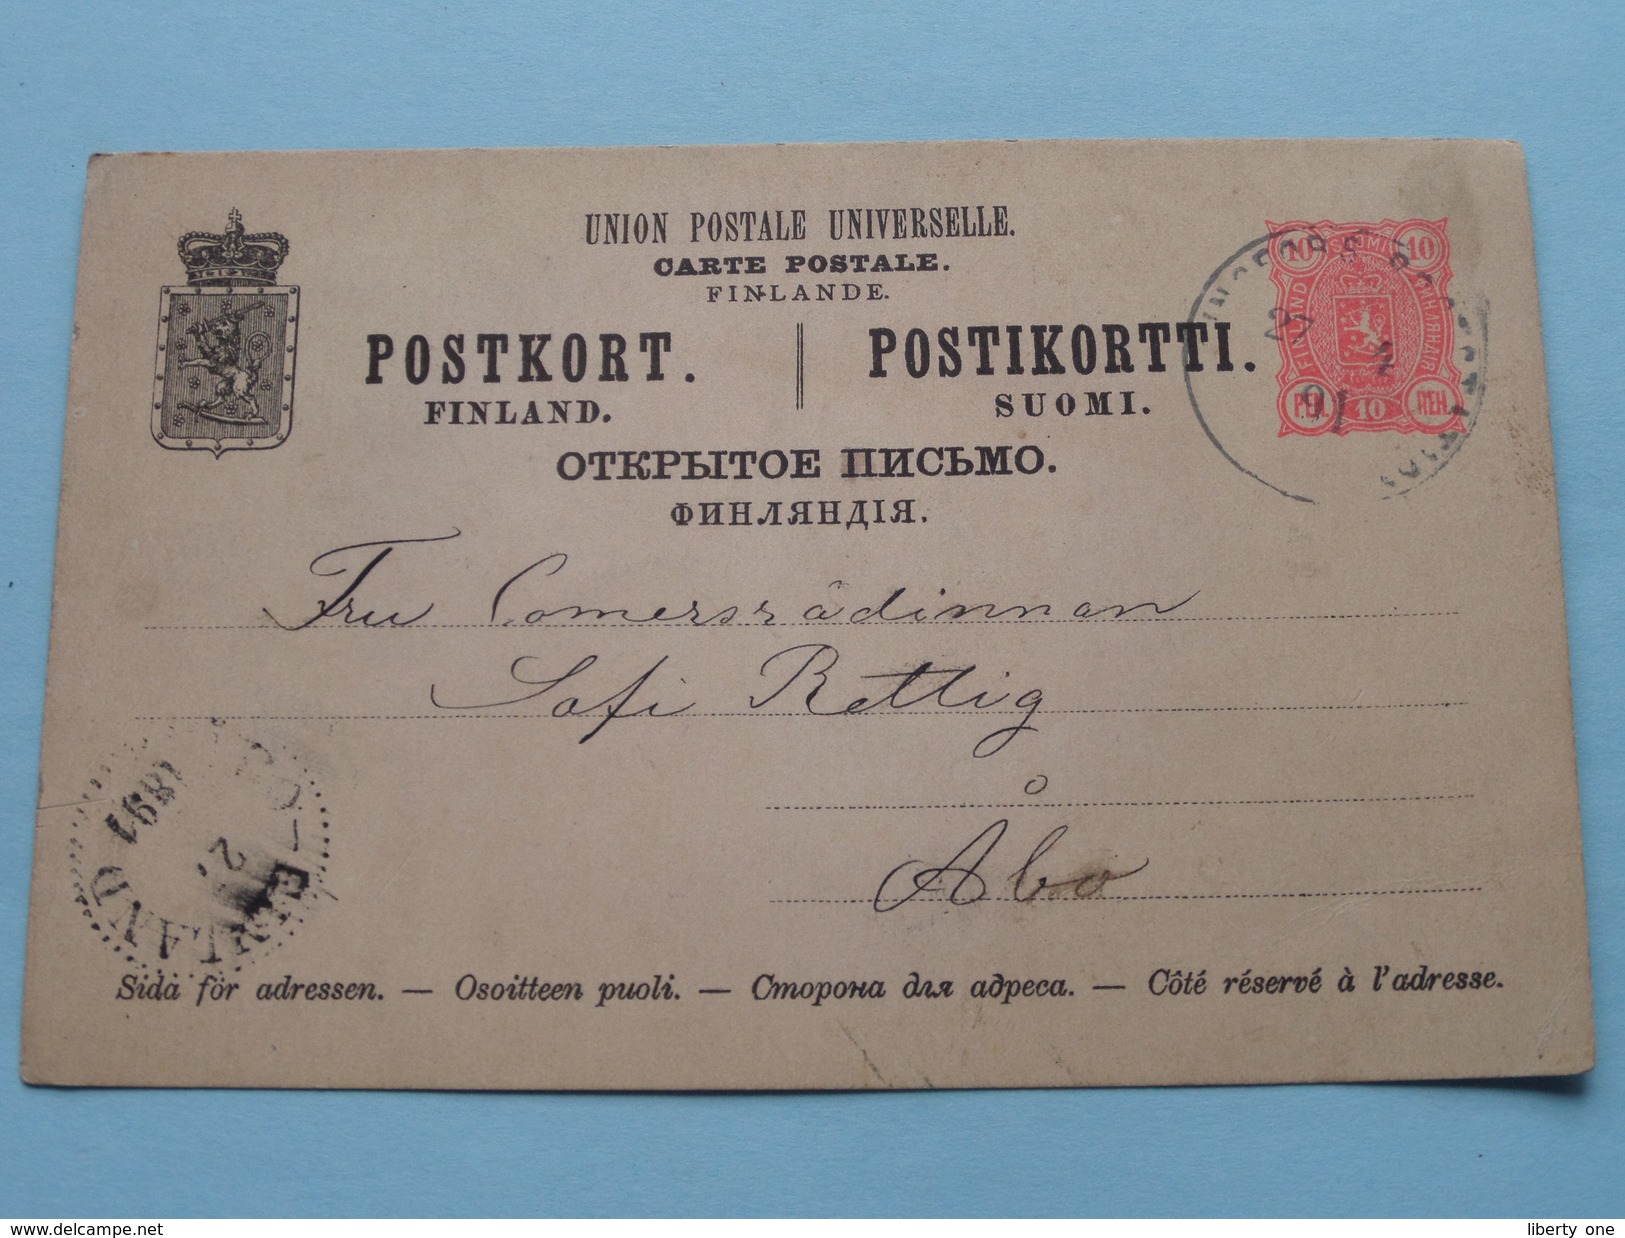 UNION POSTALE UNIVERSELLE.
CARTE POSTALE.
FINLANDE.
POSTKORT. POSTIKORTTI.
FINLAND. SUOMI.
ОТКРЫТОЕ ПИСЬМО.
ФИНЛЯНДІЯ.
10 SUOMI 10
FINLAND
PEN. 10 ПЕН.
27
91
Fru Comersrådinnan
Sofi Rettig
Åbo
1891
FINLAND
Sida för adressen. — Osoitteen puoli. — Сторона для адреса. — Côté réservé à l'adresse.
www.delcampe.net liberty one